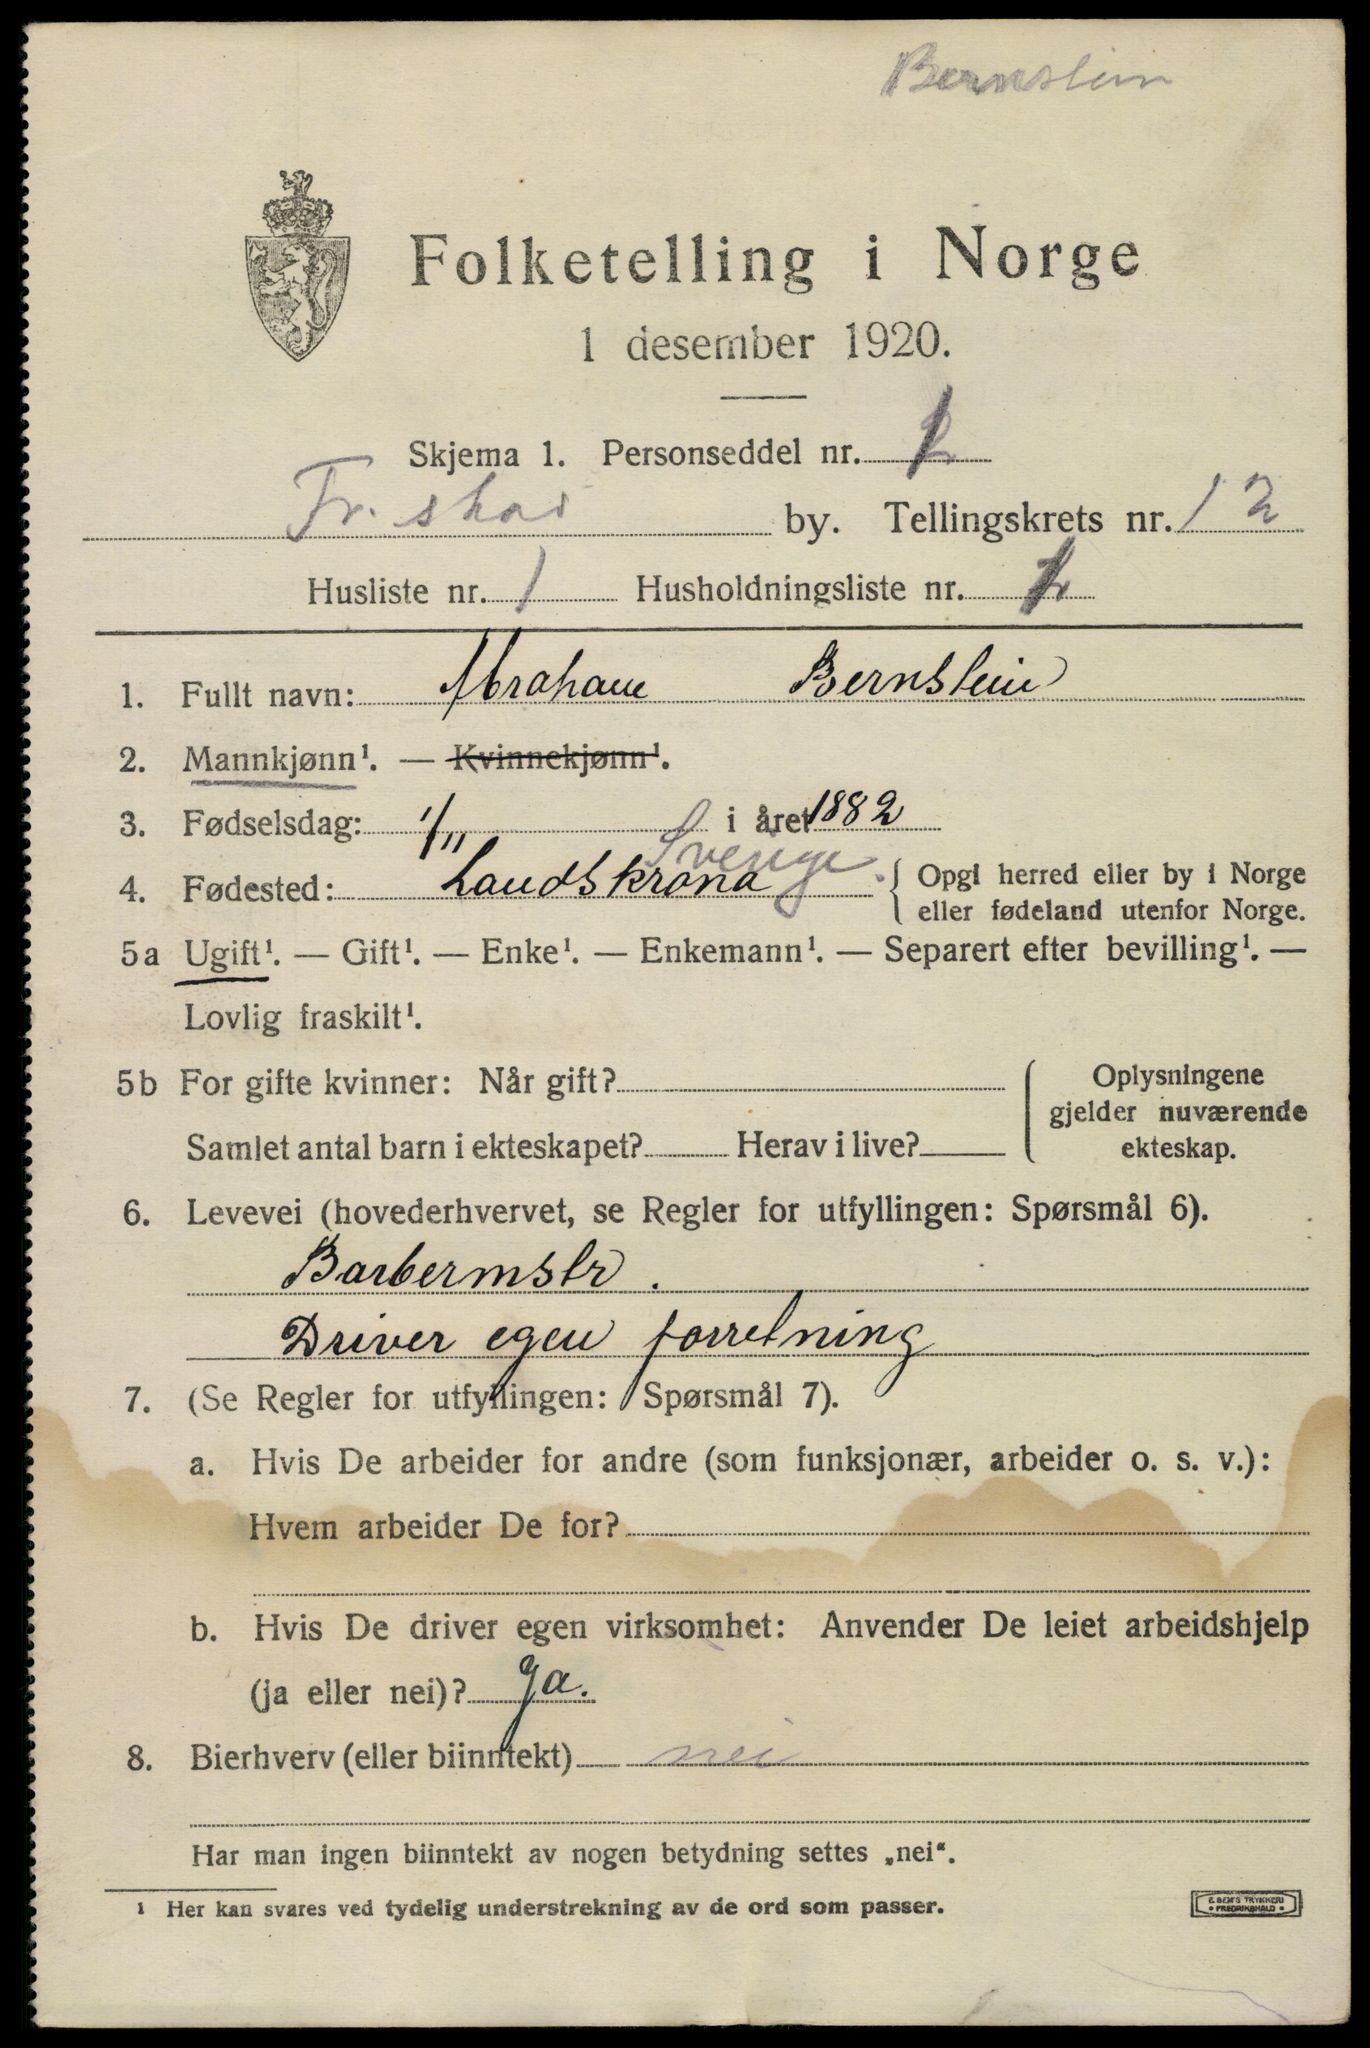 Bernstein
Folketelling i Norge
1 desember 1920.
Skjema 1. Personseddel nr.
Fr.stad by. Tellingskrets nr. 12
Husliste nr. 1 Husholdningsliste nr.
1. Fullt navn: Abraham Bernstein
2. Mannkjønn¹. — Kvinnekjønn¹.
3. Fødselsdag: 1/11 i året 1882
Sverige.
4. Fødested: Landskrona { Opgi herred eller by i Norge
eller fødeland utenfor Norge.
5a Ugift¹. — Gift¹. — Enke¹. — Enkemann¹. — Separert efter bevilling¹. —
Lovlig fraskilt¹.
5b For gifte kvinner: Når gift? { Oplysningene
gjelder nuværende
Samlet antal barn i ekteskapet? Herav i live? ekteskap.
6. Levevei (hovederhvervet, se Regler for utfyllingen: Spørsmål 6).
Barbermstr.
Driver egen forretning
7. (Se Regler for utfyllingen: Spørsmål 7).
a. Hvis De arbeider for andre (som funksjonær, arbeider o. s. v.):
Hvem arbeider De for?
b. Hvis De driver egen virksomhet: Anvender De leiet arbeidshjelp
(ja eller nei)? Ja.
8. Bierhverv (eller biinntekt) nei
Har man ingen biinntekt av nogen betydning settes „nei“.
¹ Her kan svares ved tydelig understrekning av de ord som passer.
E. SEM'S TRYKKERI
• FREDRIKSHALD •